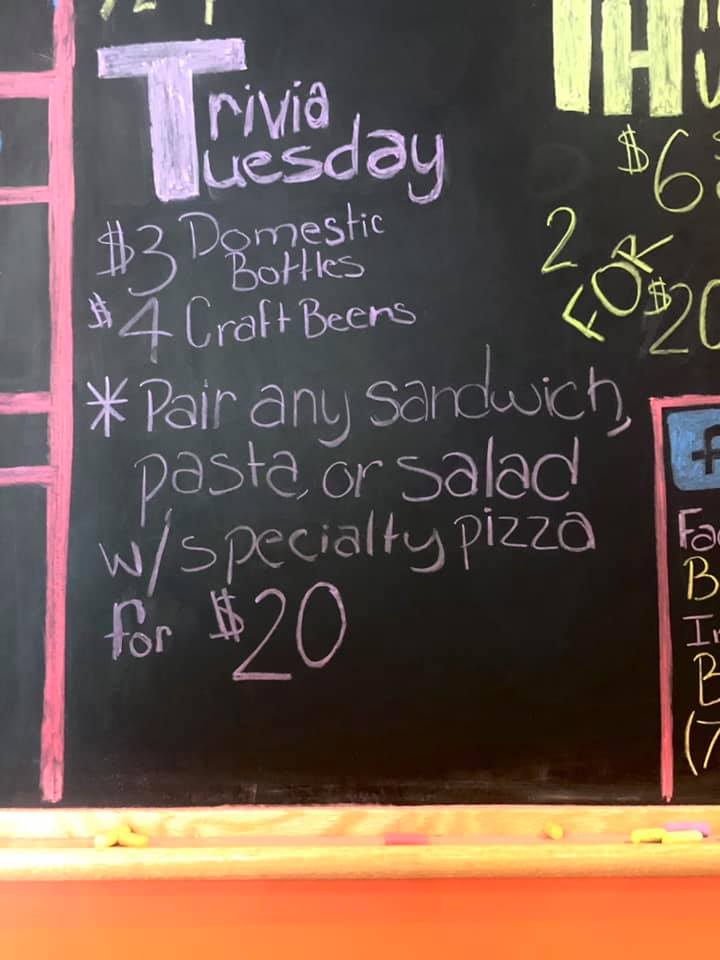 Trivia
Tuesday
$3 Domestic
Bottles
$4 Craft Beers
* Pair any sandwich,
pasta, or salad
w/specialty pizza
for $20
TH
$6
2
FOR
$20
f
B
B
(7